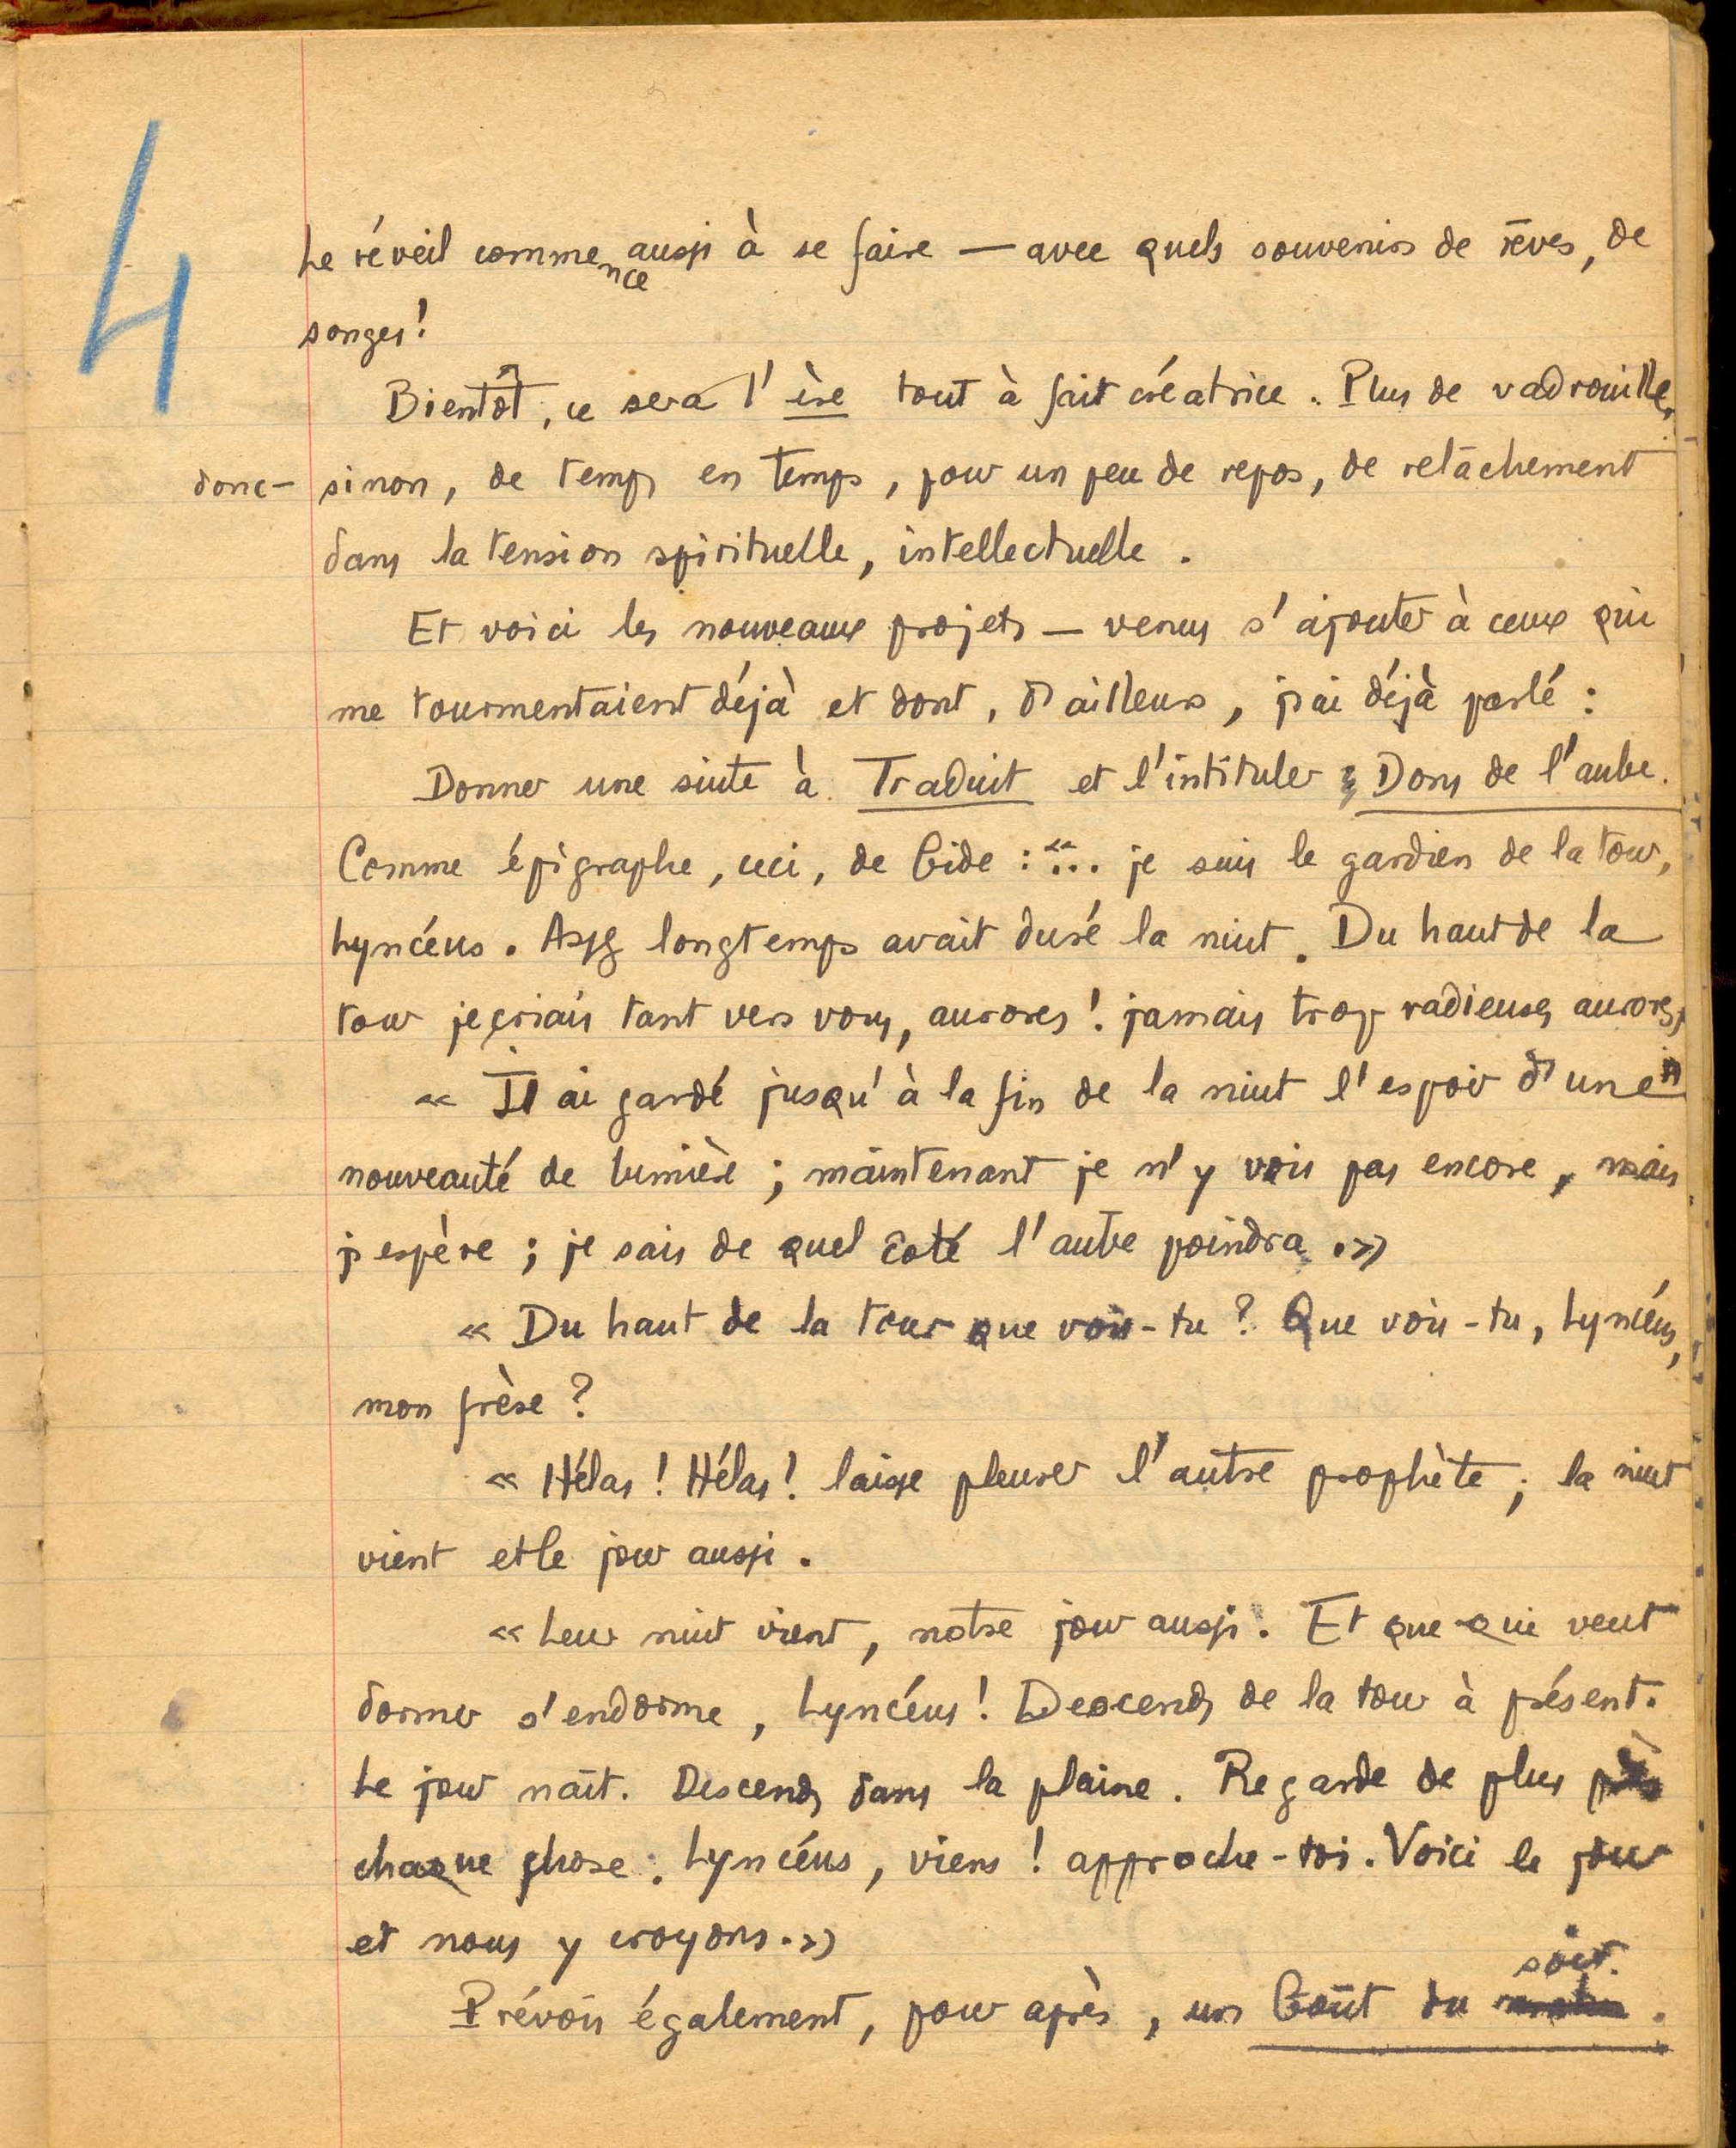 4
Le réveil commence aussi à se faire — avec quels souvenirs de rêves, de
songes !
Bientôt, ce sera l'ère tout à fait créatrice. Plus de vadrouille,
donc — sinon, de temps en temps, pour un peu de repos, de relâchement
dans la tension spirituelle, intellectuelle.
Et voici les nouveaux projets — venus s'ajouter à ceux qui
me tourmentaient déjà et dont, d'ailleurs, j'ai déjà parlé :
Donner une suite à Traduit et l'intituler : Dons de l'aube.
Comme épigraphe, ceci, de Gide : « ... je suis le gardien de la tour,
Lyncéus. Assez longtemps avait duré la nuit. Du haut de la
tour je criais tant vers vous, aurores ! jamais trop radieuses aurores,
« J'ai gardé jusqu'à la fin de la nuit l'espoir d'une
nouveauté de lumière ; maintenant je n'y vois pas encore, mais
j'espère ; je sais de quel côté l'aube poindra. »
« Du haut de la tour que vois-tu ? Que vois-tu, Lyncéus,
mon frère ?
« Hélas ! Hélas ! laisse pleurer l'autre prophète ; la nuit
vient et le jour aussi.
« Leur nuit vient, notre jour aussi. Et que qui veut
dormir s'endorme, Lyncéus ! Descends de la tour à présent.
Le jour naît. Descends dans la plaine. Regarde de plus près
chaque chose. Lyncéus, viens ! approche-toi. Voici le jour
et nous y croyons. »
soir.
Prévoir également, pour après, un Goût du matin.